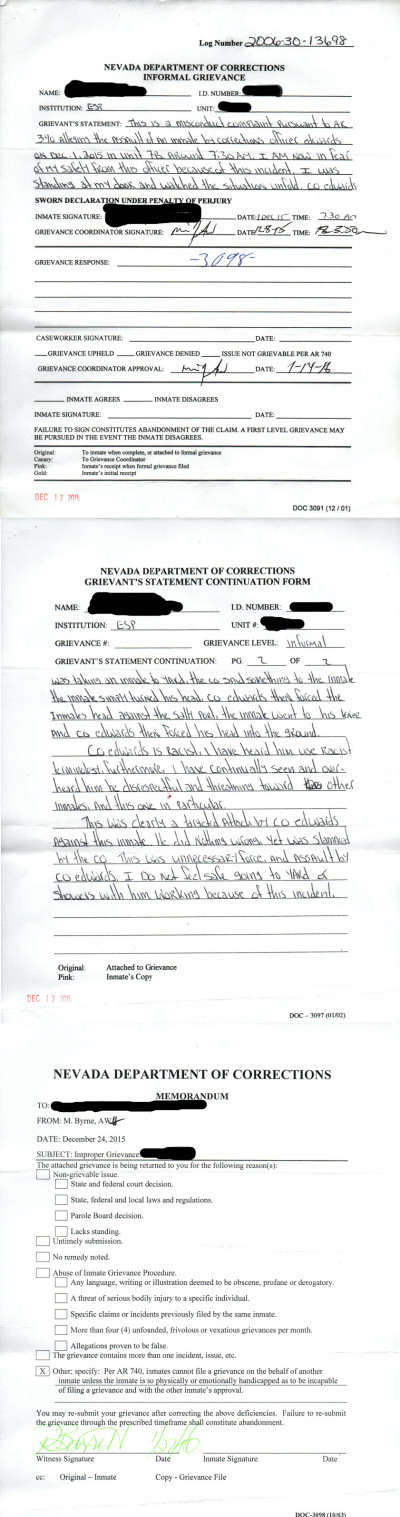 Log Number 2006-30-13698
NEVADA DEPARTMENT OF CORRECTIONS
INFORMAL GRIEVANCE
NAME: I.D. NUMBER:
INSTITUTION: ESP UNIT:
GRIEVANT'S STATEMENT: This is a misconduct complaint pursuant to AR
340 alleging the assault of an inmate by corrections officer edwards
on Dec 1, 2015 in unit 7B Around 7:30 AM. I AM now in fear
of my safety from this officer because of this incident. I was
standing at my door and watched the situation unfold. CO edwards
SWORN DECLARATION UNDER PENALTY OF PERJURY
INMATE SIGNATURE: DATE: 1 Dec 15 TIME: 730 AM
GRIEVANCE COORDINATOR SIGNATURE: DATE: TIME:
GRIEVANCE RESPONSE: -3098-
CASEWORKER SIGNATURE: DATE:
GRIEVANCE UPHELD GRIEVANCE DENIED ISSUE NOT GRIEVABLE PER AR 740
GRIEVANCE COORDINATOR APPROVAL: DATE: 1-14-16
INMATE AGREES INMATE DISAGREES
INMATE SIGNATURE: DATE:
FAILURE TO SIGN CONSTITUTES ABANDONMENT OF THE CLAIM. A FIRST LEVEL GRIEVANCE MAY
BE PURSUED IN THE EVENT THE INMATE DISAGREES.
Original: To inmate when complete, or attached to formal grievance
Canary: To Grievance Coordinator
Pink: Inmate's receipt when formal grievance filed
Gold: Inmate's initial receipt
DEC 17 2015
DOC 3091 (12 / 01)
NEVADA DEPARTMENT OF CORRECTIONS
GRIEVANT'S STATEMENT CONTINUATION FORM
NAME: I.D. NUMBER:
INSTITUTION: ESP UNIT #:
GRIEVANCE #: GRIEVANCE LEVEL: informal
GRIEVANT'S STATEMENT CONTINUATION: PG. 2 OF 2
was taking an inmate to YARD. the co said something to the inmate
the inmate simply turned his head. CO edwards then forced the
Inmates head against the sally port, the inmate went to his knee
And co edwards then forced his head into the ground.
CO edwards is Racist. I have heard him use Racist
furthermore, I have continually seen and over-
heard him be disrespectful and threatning toward other
inmates, And this one in particular.
This was clearly a targeted Attack by CO edwards
Against this inmate. He did nothing wrong. Yet was slammed
by the CO. This was unnecessary force, and Assault by
CO edwards. I Do not feel safe going to YARD or
showers with him working because of this incident.
Original: Attached to Grievance
Pink: Inmate's Copy
DEC 17 2015
DOC – 3097 (01/02)
NEVADA DEPARTMENT OF CORRECTIONS
MEMORANDUM
TO:
FROM: M. Byrne, AW
DATE: December 24, 2015
SUBJECT: Improper Grievance
The attached grievance is being returned to you for the following reason(s):
Non-grievable issue.
State and federal court decision.
State, federal and local laws and regulations.
Parole Board decision.
Lacks standing.
Untimely submission.
No remedy noted.
Abuse of Inmate Grievance Procedure.
Any language, writing or illustration deemed to be obscene, profane or derogatory.
A threat of serious bodily injury to a specific individual.
Specific claims or incidents previously filed by the same inmate.
More than four (4) unfounded, frivolous or vexatious grievances per month.
Allegations proven to be false.
The grievance contains more than one incident, issue, etc.
X Other; specify: Per AR 740, inmates cannot file a grievance on the behalf of another
inmate unless the inmate is so physically or emotionally handicapped as to be incapable
of filing a grievance and with the other inmate's approval.
You may re-submit your grievance after correcting the above deficiencies. Failure to re-submit
the grievance through the prescribed timeframe shall constitute abandonment.
Witness Signature Date Inmate Signature Date
cc: Original – Inmate Copy - Grievance File
DOC-3098 (10/03)